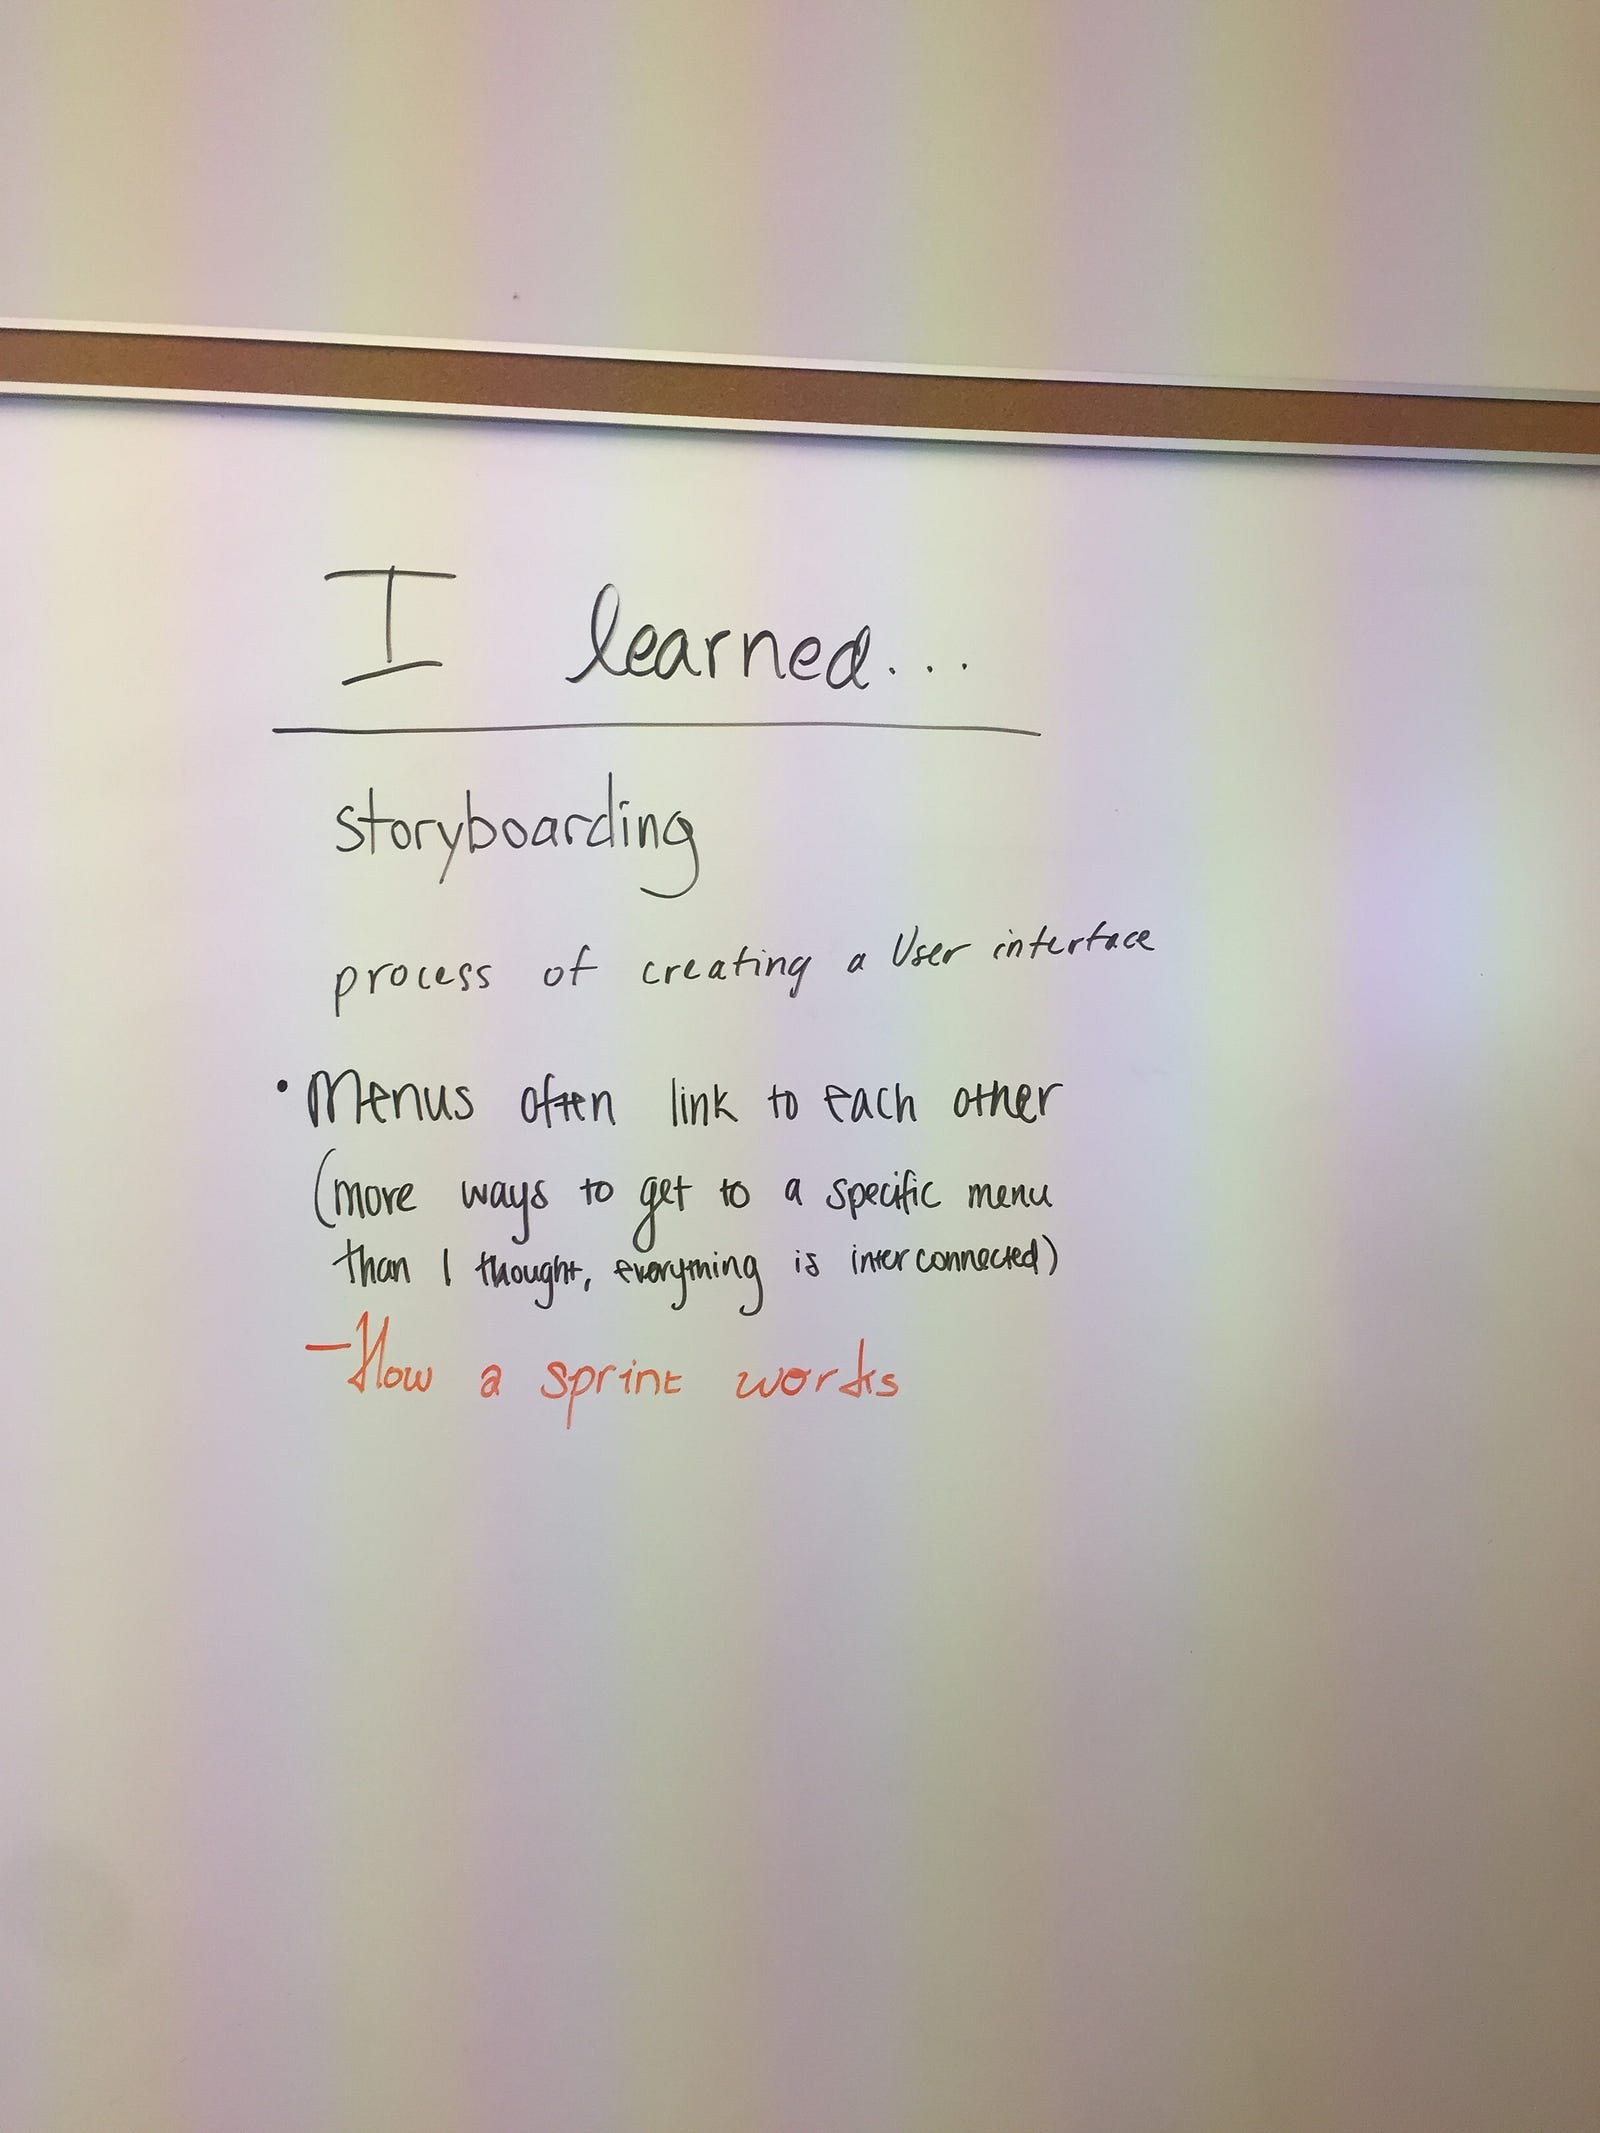 I learned...
storyboarding
process of creating a User interface
• Menus often link to each other
(more ways to get to a specific menu
than I thought, everything is interconnected)
- How a sprint works